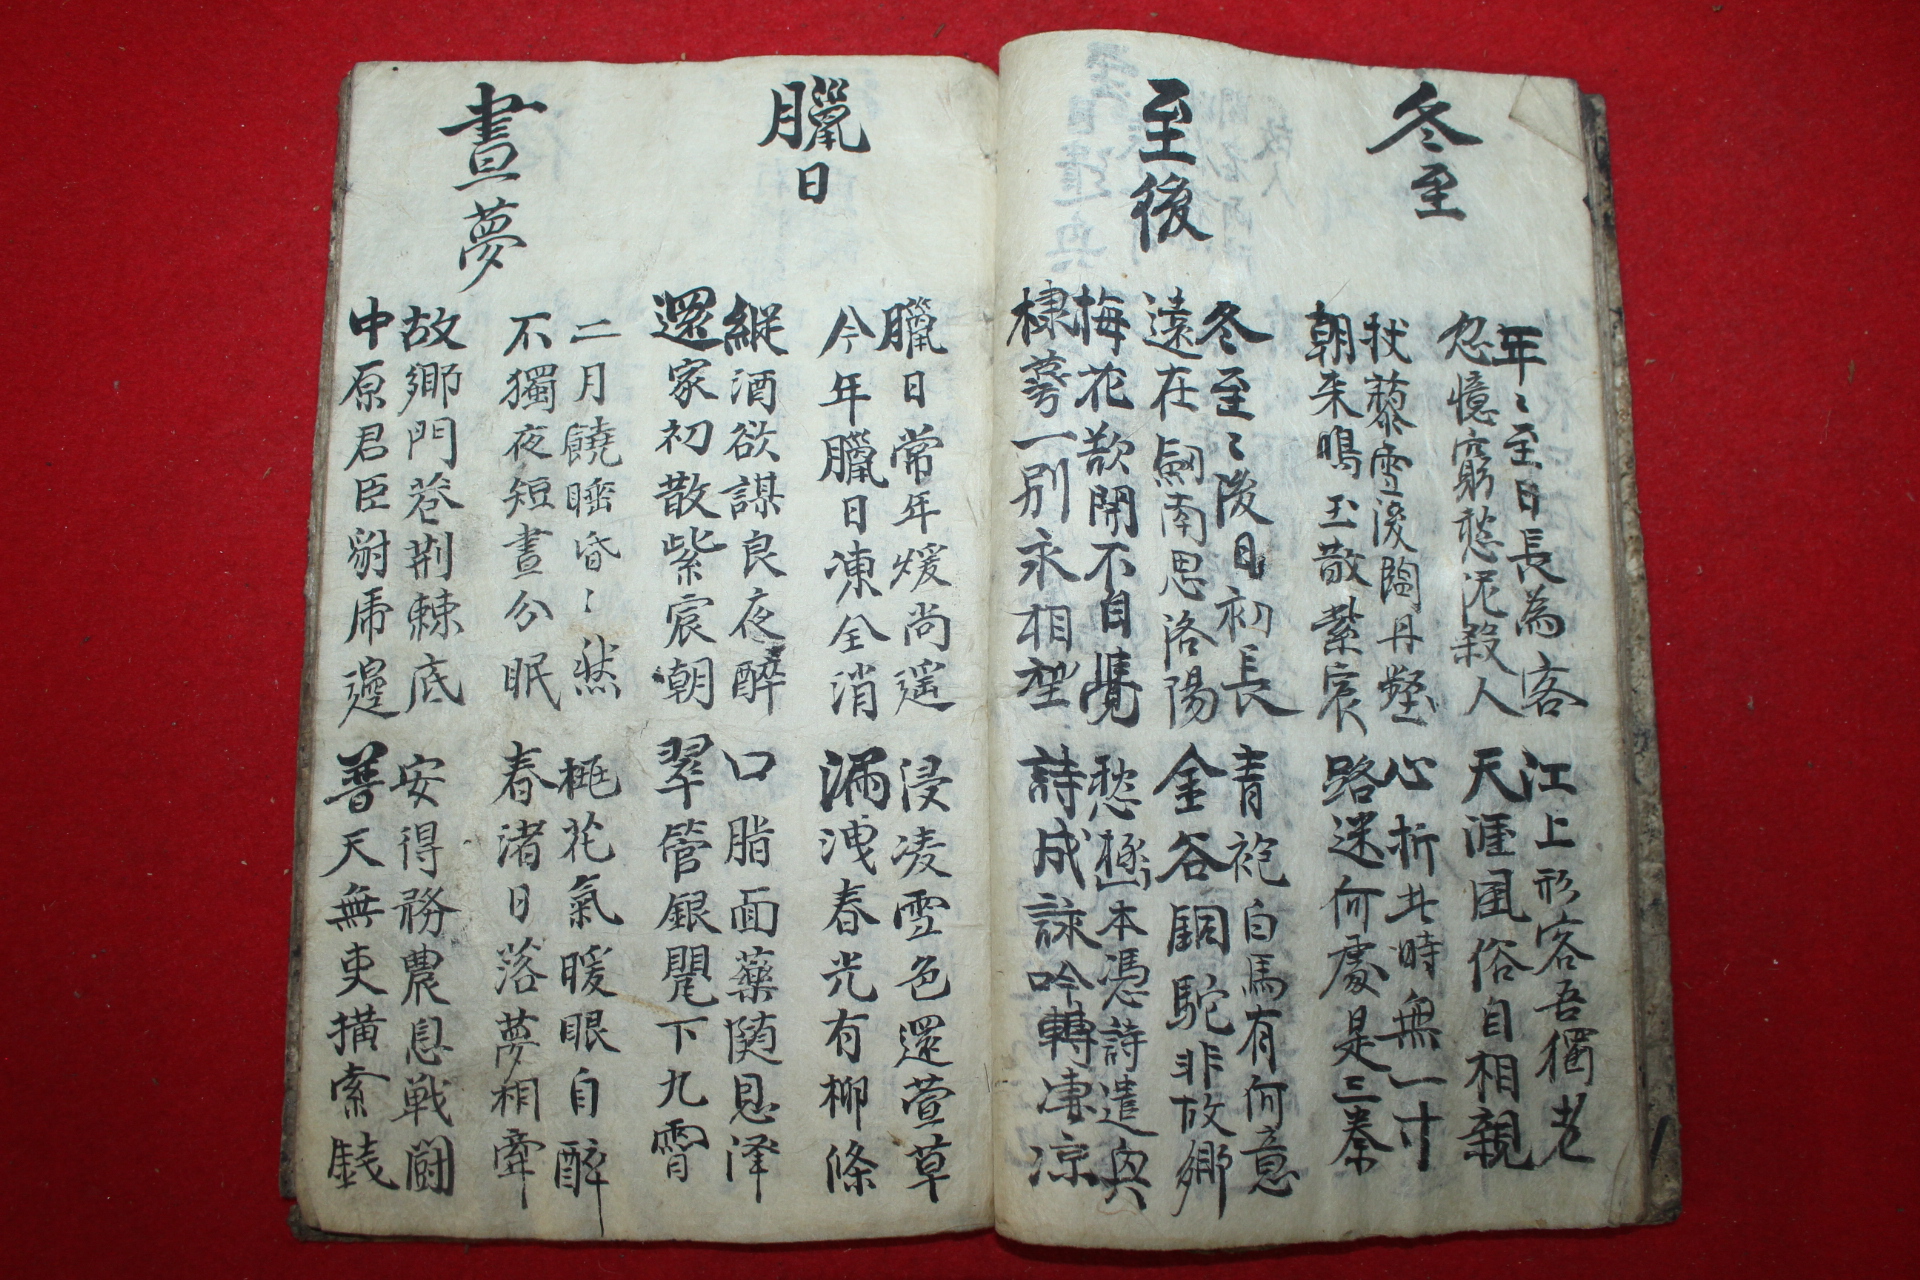 冬至
年〻至日長為客
忽憶窮愁泥殺人
江上形容吾獨老
天涯風俗自相親
杖藜雪後臨丹壑
朝来鳴玉散紫宸
心折此時無一寸
路迷何處是三秦
至後
冬至〻後日初長
遠在劒南思洛陽
青袍白馬有何意
金谷銅駝非故鄉
梅花欲開不自覺
棣萼一別永相望
愁極本憑詩遣興
詩成詠吟轉凄凉
臘日
臘日常年煖尚遥
今年臘日凍全消
浸凌雪色還萱草
漏洩春光有柳條
縱酒欲謀良夜醉
還家初散紫宸朝
口脂面藥随恩泽
翠管銀甖下九霄
晝夢
二月饒睡昏〻然
不獨夜短晝分眠
桃花氣暖眼自醉
春渚日落夢相牽
故鄉門巷荆棘底
中原君臣豺虎邊
安得務農息戦鬪
普天無吏横索錢